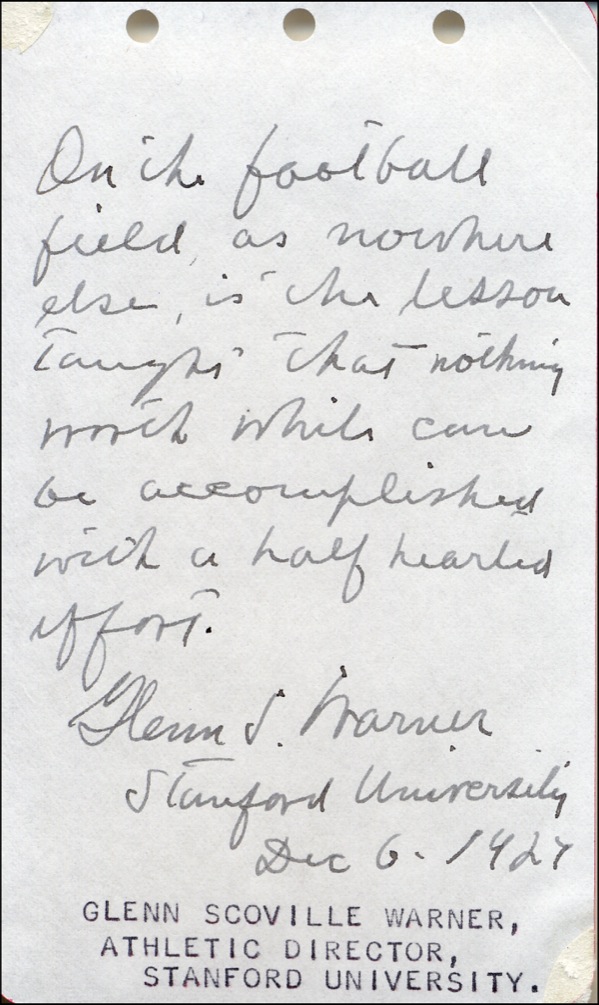 On the football
field, as nowhere
else, is the lesson
taught that nothing
worth while can
be accomplished
with a half hearted
effort.
Glenn S. Warner
Stanford University
Dec 6 - 1927
GLENN SCOVILLE WARNER,
ATHLETIC DIRECTOR,
STANFORD UNIVERSITY.